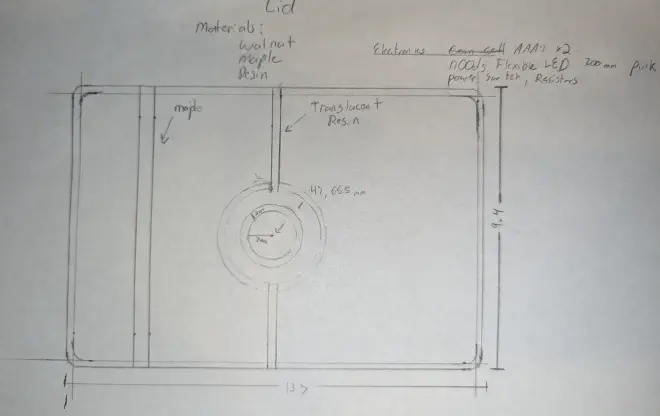 Lid
Materials:
walnut
maple
Resin
Electronics Coin Cell AAA's x2
nOOds Flexible LED 300mm pink
power switch, Resistors
maple
Translucent
Resin
9.4